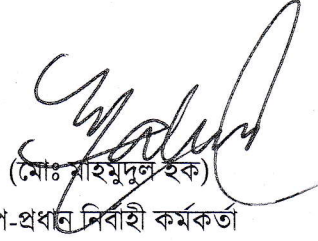 (মোঃ মাহমুদুল হক)
-প্রধান নির্বাহী কর্মকর্তা